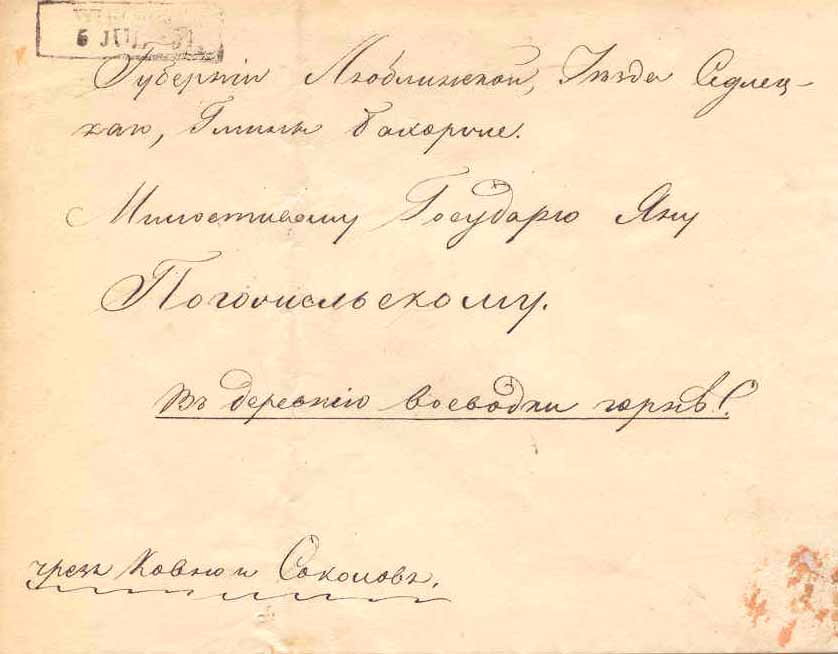 5 JUL
Губерніи Люблинской, Уѣзда Седлец-
каго, Гмины
Милостивому Государю Яну
Погоніельскому.
Въ деревнію воеводки горнѣ!
чрезъ Ковно и Соколовъ.